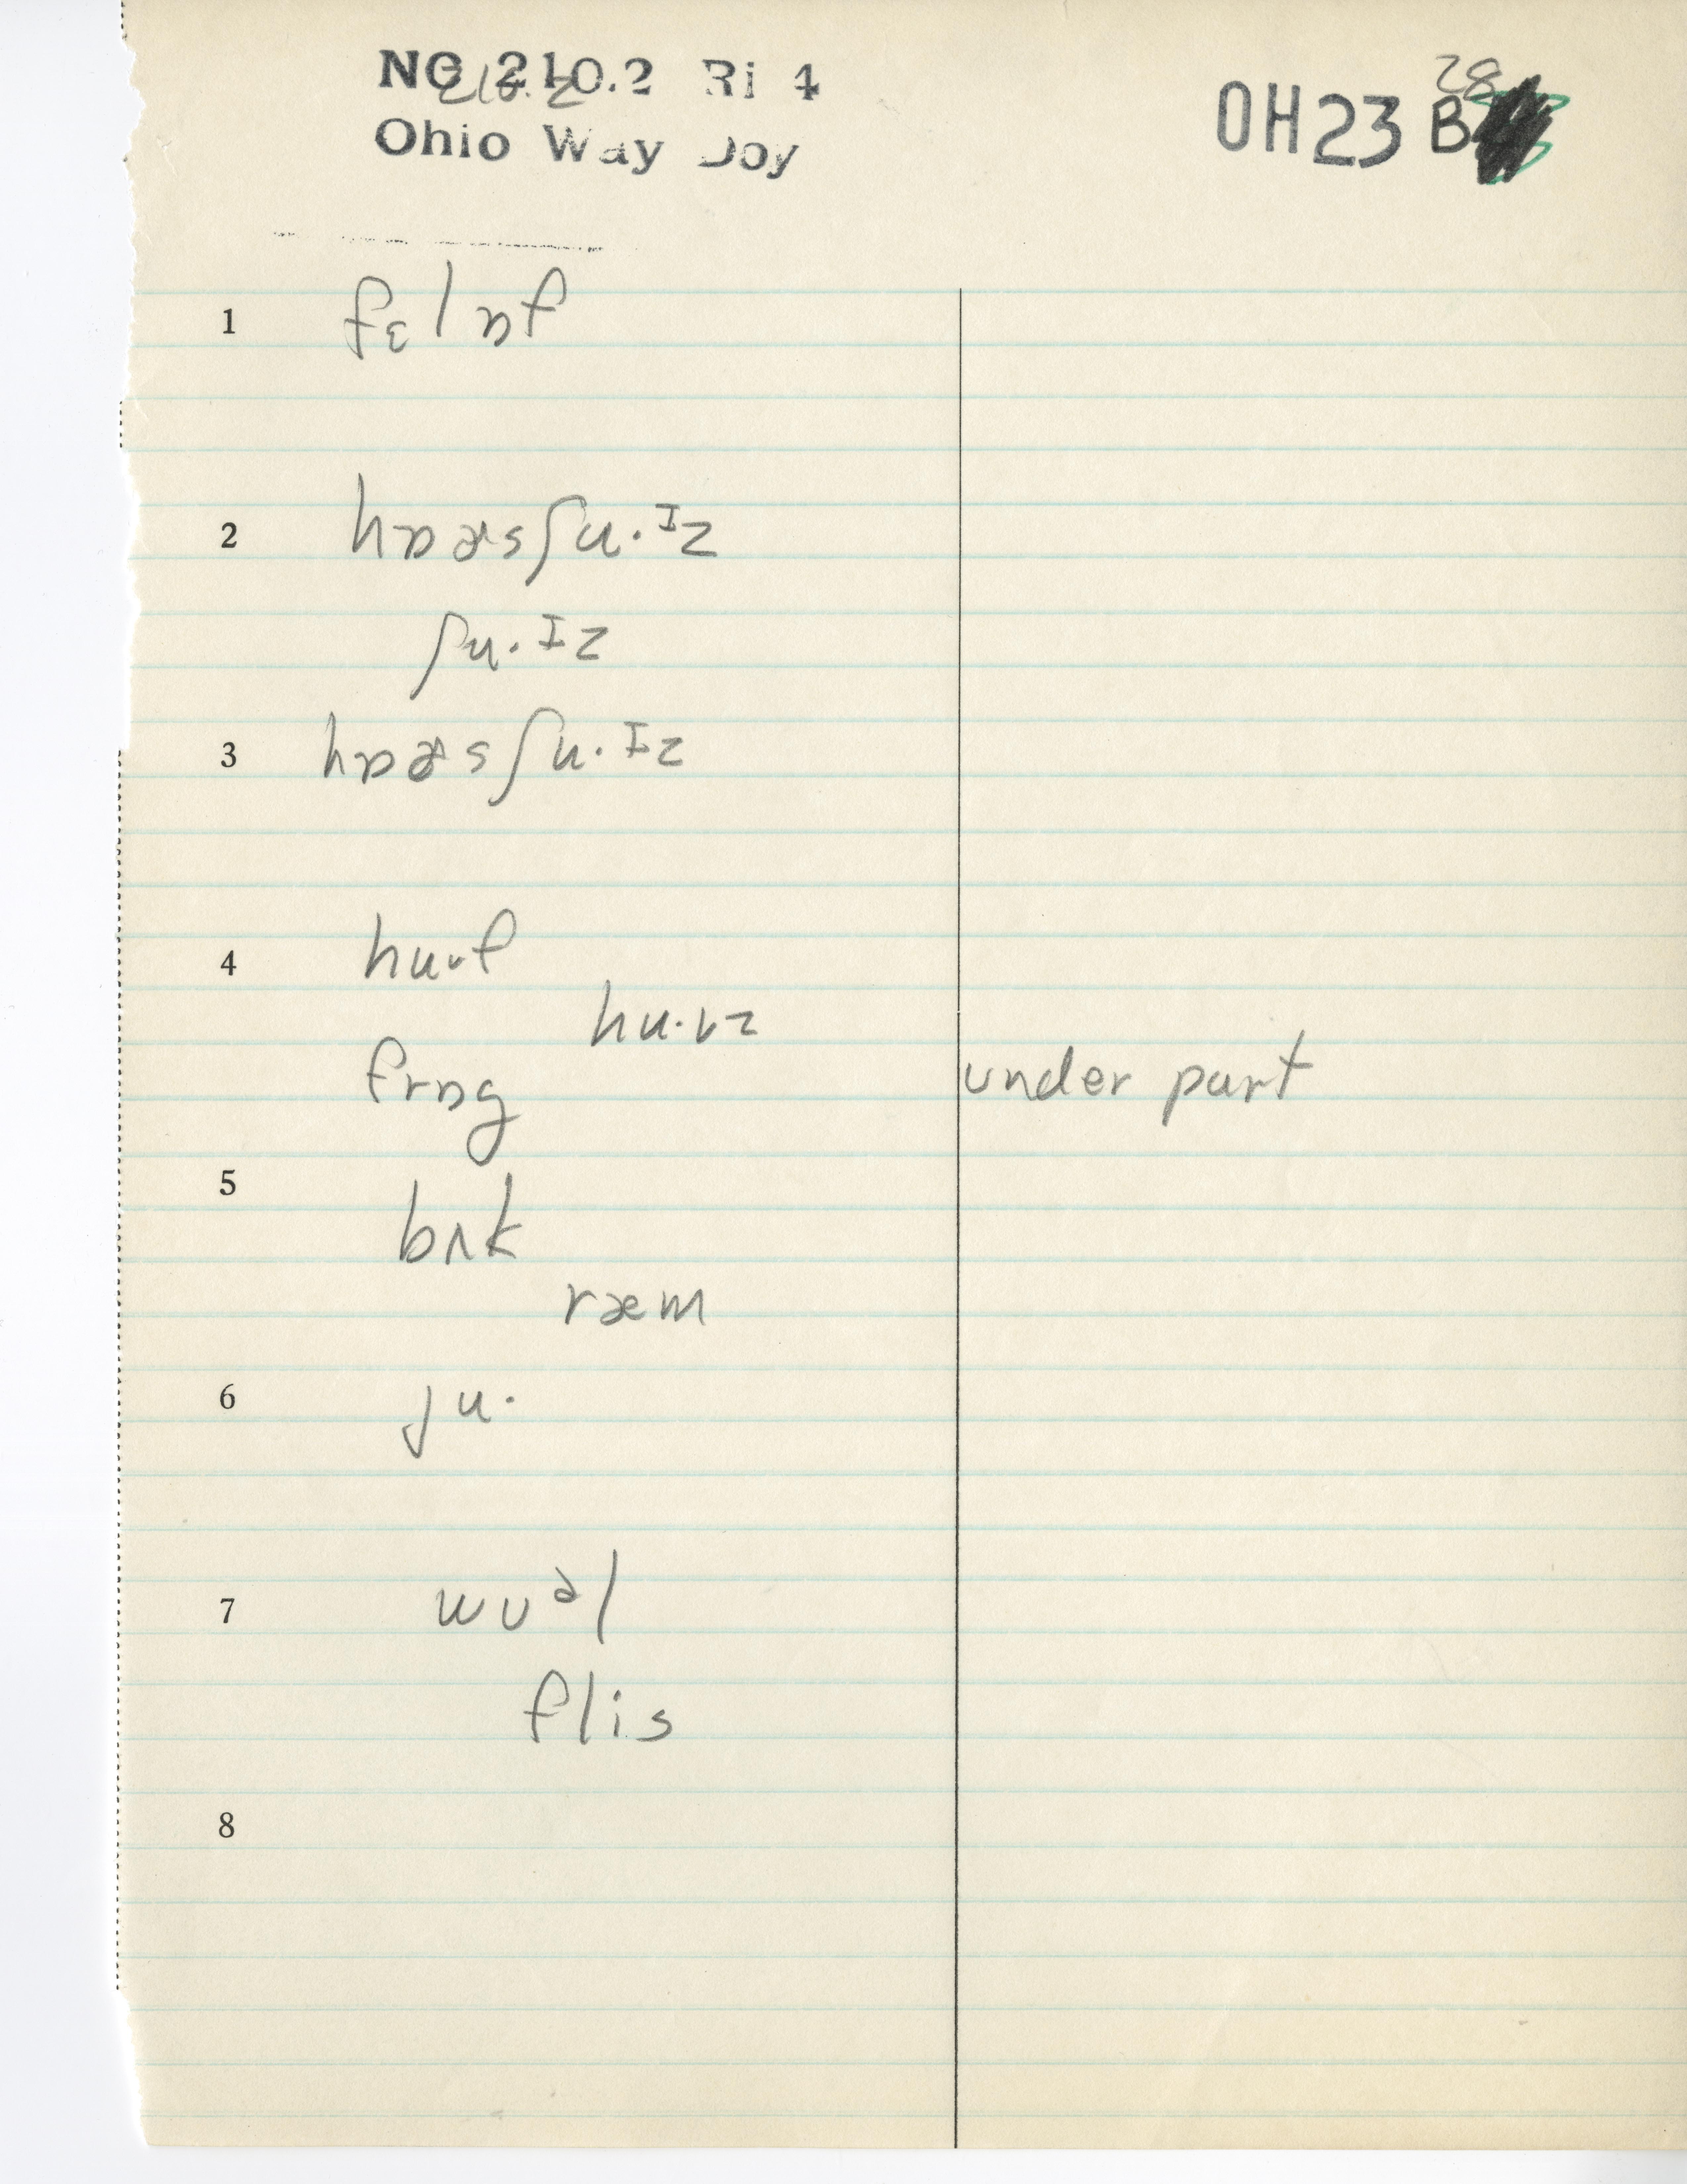 NC 210.2 Ri 4
Ohio Way Doy
OH 23 B 28
1 fɛlɒf
2 hɒɚsʃu·ɪz
ʃu·ɪz
3 hɒɚsʃu·ɪz
4 huf
hu·vz
frɒg under part
5 bʌk
ræm
6 ju·
7 wʊəl
flis
8